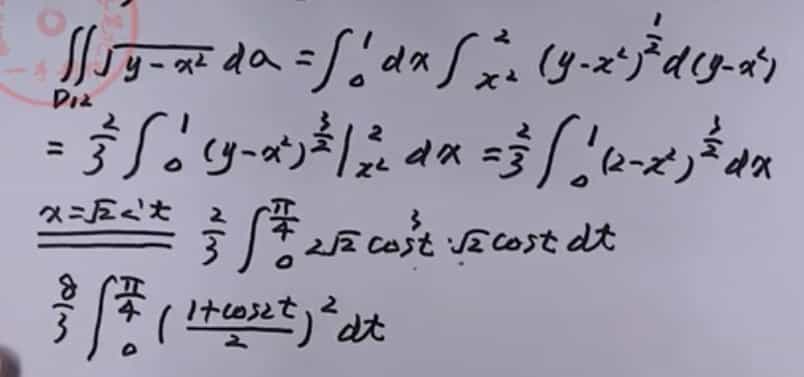 ∬_{D₁₂} √(y-x²) dσ = ∫₀¹ dx ∫_{x²}^{2} (y-x²)^{1/2} d(y-x²)
= 2/3 ∫₀¹ (y-x²)^{3/2} |_{x²}^{2} dx = 2/3 ∫₀¹ (2-x²)^{3/2} dx
x=√2 sin t 2/3 ∫₀^{π/4} 2√2 cos³t · √2 cost dt
8/3 ∫₀^{π/4} ((1+cos2t)/2)² dt